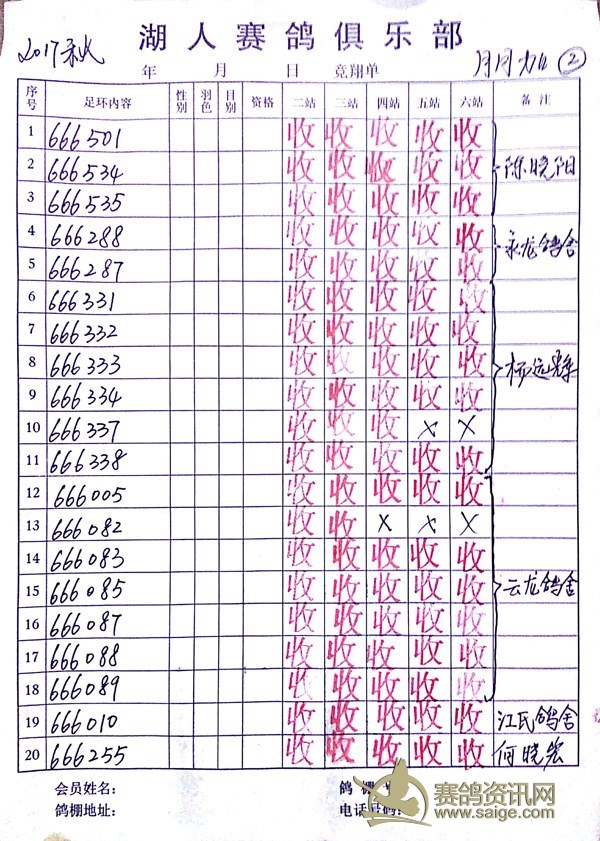 湖人赛鸽俱乐部
2017秋
年 月 日 竞翔单
月月加②
序号 足环内容 性别 羽色 目别 资格 二站 三站 四站 五站 六站 备注
1 666501 收 收 收 收 收
2 666534 收 收 收 收 收 陈晓阳
3 666535 收 收 收 收 收
4 666288 收 收 收 收 收 永龙鸽舍
5 666287 收 收 收 收 收
6 666331 收 收 收 收 收
7 666332 收 收 收 收 收
8 666333 收 收 收 收 收 杨远
9 666334 收 收 收 收 收
10 666337 收 收 收 × ×
11 666338 收 收 收 收 收
12 666005 收 收 收 收 收
13 666082 收 收 × × ×
14 666083 收 收 收 收 收
15 666085 收 收 收 收 收 云龙鸽舍
16 666087 收 收 收 收 收
17 666088 收 收 收 收 收
18 666089 收 收 收 收 收
19 666010 收 收 收 收 收 江氏鸽舍
20 666255 收 收 收 收 收 何晓宏
会员姓名: 鸽棚
鸽棚地址: 电话号码:
赛鸽资讯网
www.saige.com